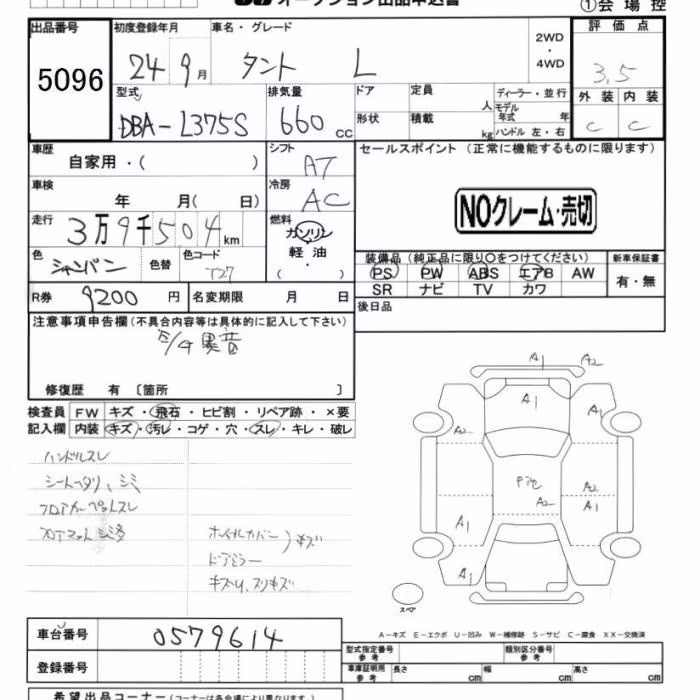 オークション出品申込書 ①会場控
出品番号 初度登録年月 車名・グレード 2WD・4WD 評価点
5096 24 9月 タント L 3.5
型式 排気量 ドア 定員 人 ディーラー・並行 外装 内装
DBA-L375S 660 cc 形状 積載 kg モデル年式 年 ハンドル 左・右 C C
車歴 自家用・( ) シフト AT セールスポイント(正常に機能するものに限ります)
車検 年 月( 日) 冷房 AC
NOクレーム・売切
走行 3万9千504km 燃料 ガソリン 軽油 ( ・ )
色 シャンパン 色替 色コード T27
装備品(純正品に限り○をつけてください) 新車保証書
PS PW ABS エアB AW 有・無
SR ナビ TV カワ
R券 9200円 名変期限 月 日 後日品
注意事項申告欄(不具合内容等は具体的に記入して下さい)
異音
修復歴 有 〔箇所 〕
検査員 FW キズ・飛石・ヒビ割・リペア跡・×要
記入欄 内装 キズ・汚レ・コゲ・穴・スレ・キレ・破レ
ハンドルスレ
シートヘタリ、シミ
フロアカーペットスレ
フロアマット
ホイルカバー)キズ
ドアミラー
キズU、スリキズ
A1 A2
A1 A1
A2
A2
A2 A1
A1
A1
スペア
A-キズ E-エクボ U-凹み W-補修跡 S-サビ C-腐食 XX-交換済
車台番号 0579614
型式指定番号参考 類別区分番号参考
登録番号 車庫証明用参考 長さ cm 幅 cm 高さ cm
希望出品コーナー(コーナーは各会場により異なります)